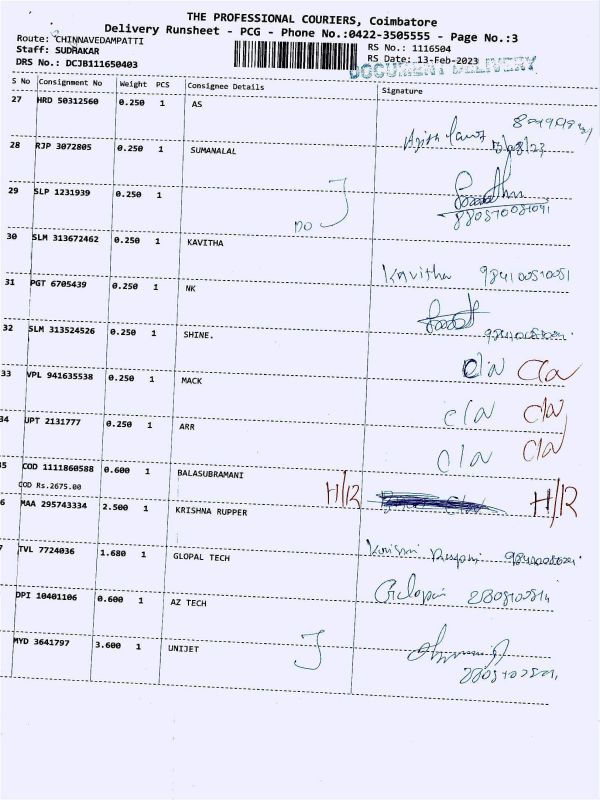 THE PROFESSIONAL COURIERS, Coimbatore
Delivery Runsheet - PCG - Phone No.:0422-3505555 - Page No.:3
Route: CHINNAVEDAMPATTI
RS No.: 1116504
Staff: SUDHAKAR
RS Date: 13-Feb-2023
DRS No.: DCJB111650403
DOCUMENT DELIVERY
S No Consignment No Weight PCS Consignee Details Signature
27 HRD 50312560 0.250 1 AS
28 RJP 3072805 0.250 1 SUMANALAL
29 SLP 1231939 0.250 1
DO
30 SLM 313672462 0.250 1 KAVITHA Kavitha
31 PGT 6705439 0.250 1 NK
32 SLM 313524526 0.250 1 SHINE.
33 VPL 941635538 0.250 1 MACK C/N C/N
34 UPT 2131777 0.250 1 ARR C/N C/N
C/N C/N
5 COD 1111860588 0.600 1 BALASUBRAMANI H/R H/R
COD Rs.2675.00
6 MAA 295743334 2.500 1 KRISHNA RUPPER
7 TVL 7724036 1.680 1 GLOPAL TECH
DPI 10401106 0.600 1 AZ TECH
MYD 3641797 3.600 1 UNIJET